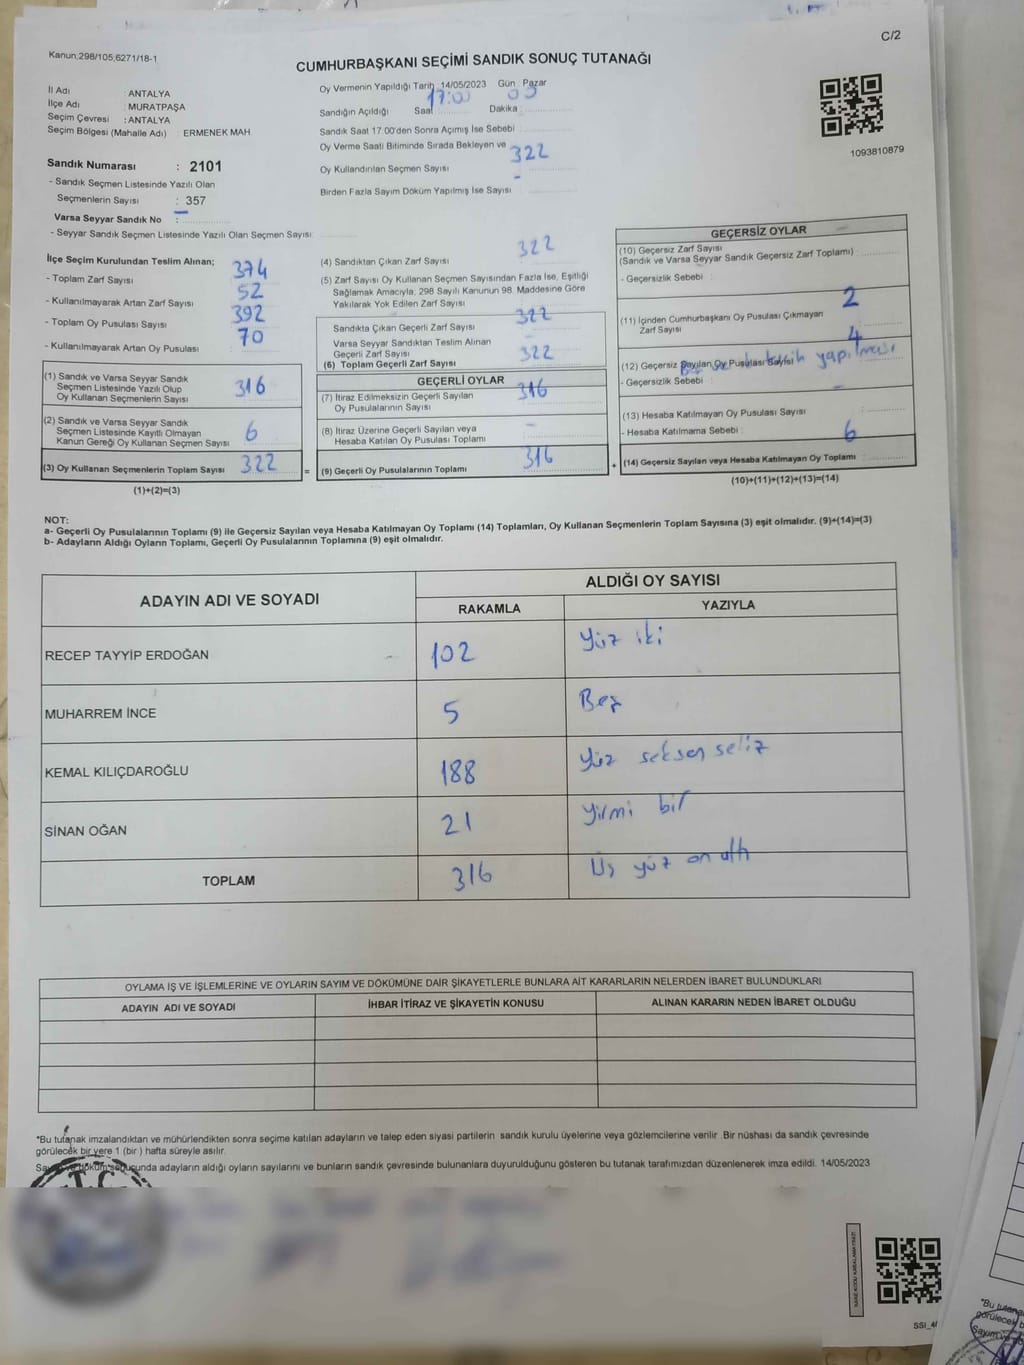 C/2
Kanun;298/105;6271/18-1
CUMHURBAŞKANI SEÇİMİ SANDIK SONUÇ TUTANAĞI
İl Adı : ANTALYA
İlçe Adı : MURATPAŞA
Seçim Çevresi : ANTALYA
Seçim Bölgesi (Mahalle Adı) : ERMENEK MAH
Sandık Numarası : 2101
- Sandık Seçmen Listesinde Yazılı Olan
Seçmenlerin Sayısı : 357
Varsa Seyyar Sandık No : -
- Seyyar Sandık Seçmen Listesinde Yazılı Olan Seçmen Sayısı:
Oy Vermenin Yapıldığı Tarih :14/05/2023 Gün : Pazar
Sandığın Açıldığı Saat 17:00 Dakika :
Sandık Saat 17.00'den Sonra Açımış İse Sebebi :
Oy Verme Saati Bitiminde Sırada Bekleyen ve
Oy Kullandırılan Seçmen Sayısı 322
Birden Fazla Sayım Döküm Yapılmış İse Sayısı : -
1093810879
İlçe Seçim Kurulundan Teslim Alınan;
- Toplam Zarf Sayısı : 374
- Kullanılmayarak Artan Zarf Sayısı : 52
- Toplam Oy Pusulası Sayısı : 392
- Kullanılmayarak Artan Oy Pusulası : 70
(1) Sandık ve Varsa Seyyar Sandık
Seçmen Listesinde Yazılı Olup
Oy Kullanan Seçmenlerin Sayısı 316
(2) Sandık ve Varsa Seyyar Sandık
Seçmen Listesinde Kayıtlı Olmayan
Kanun Gereği Oy Kullanan Seçmen Sayısı 6
(3) Oy Kullanan Seçmenlerin Toplam Sayısı 322
(1)+(2)=(3)
(4) Sandıktan Çıkan Zarf Sayısı 322
(5) Zarf Sayısı Oy Kullanan Seçmen Sayısından Fazla İse, Eşitliği
Sağlamak Amacıyla, 298 Sayılı Kanunun 98. Maddesine Göre
Yakılarak Yok Edilen Zarf Sayısı
Sandıkta Çıkan Geçerli Zarf Sayısı 322
Varsa Seyyar Sandıktan Teslim Alınan
Geçerli Zarf Sayısı
(6) Toplam Geçerli Zarf Sayısı 322
GEÇERLİ OYLAR
(7) İtiraz Edilmeksizin Geçerli Sayılan
Oy Pusulalarının Sayısı 316
(8) İtiraz Üzerine Geçerli Sayılan veya
Hesaba Katılan Oy Pusulası Toplamı -
= (9) Geçerli Oy Pusulalarının Toplamı 316
GEÇERSİZ OYLAR
(10) Geçersiz Zarf Sayısı
(Sandık ve Varsa Seyyar Sandık Geçersiz Zarf Toplamı)
- Geçersizlik Sebebi :
(11) İçinden Cumhurbaşkanı Oy Pusulası Çıkmayan
Zarf Sayısı 2
(12) Geçersiz Sayılan Oy Pusulası Sayısı 4
- Geçersizlik Sebebi : yapılması
(13) Hesaba Katılmayan Oy Pusulası Sayısı -
- Hesaba Katılmama Sebebi :
+ (14) Geçersiz Sayılan veya Hesaba Katılmayan Oy Toplamı : 6
(10)+(11)+(12)+(13)=(14)
NOT:
a- Geçerli Oy Pusulalarının Toplamı (9) ile Geçersiz Sayılan veya Hesaba Katılmayan Oy Toplamı (14) Toplamları, Oy Kullanan Seçmenlerin Toplam Sayısına (3) eşit olmalıdır. (9)+(14)=(3)
b- Adayların Aldığı Oyların Toplamı, Geçerli Oy Pusulalarının Toplamına (9) eşit olmalıdır.
ADAYIN ADI VE SOYADI ALDIĞI OY SAYISI
RAKAMLA YAZIYLA
RECEP TAYYİP ERDOĞAN 102 Yüz iki
MUHARREM İNCE 5 Beş
KEMAL KILIÇDAROĞLU 188 Yüz seksen sekiz
SİNAN OĞAN 21 Yirmi bir
TOPLAM 316 Üç yüz on altı
OYLAMA İŞ VE İŞLEMLERİNE VE OYLARIN SAYIM VE DÖKÜMÜNE DAİR ŞİKAYETLERLE BUNLARA AİT KARARLARIN NELERDEN İBARET BULUNDUKLARI
ADAYIN ADI VE SOYADI İHBAR İTİRAZ VE ŞİKAYETİN KONUSU ALINAN KARARIN NEDEN İBARET OLDUĞU
*Bu tutanak imzalandıktan ve mühürlendikten sonra seçime katılan adayların ve talep eden siyasi partilerin sandık kurulu üyelerine veya gözlemcilerine verilir .Bir nüshası da sandık çevresinde
görülecek bir yere 1 (bir ) hafta süreyle asılır.
Sayım ve döküm sonucunda adayların aldığı oyların sayılarını ve bunların sandık çevresinde bulunanlara duyurulduğunu gösteren bu tutanak tarafımızdan düzenlenerek imza edildi. 14/05/2023
T.C.